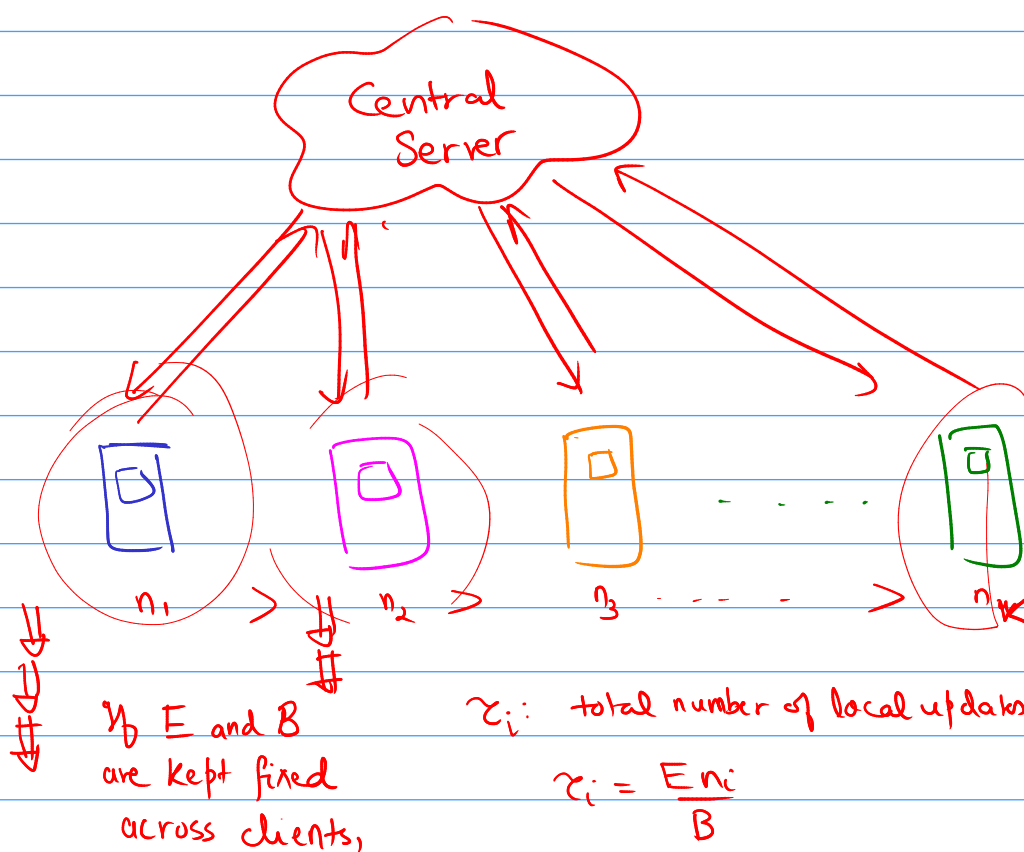 Central
Server
n₁ > n₂ > n₃ . - - - - > n
If E and B
are kept fixed
across clients,
τᵢ: total number of local updates
τᵢ = E nᵢ / B